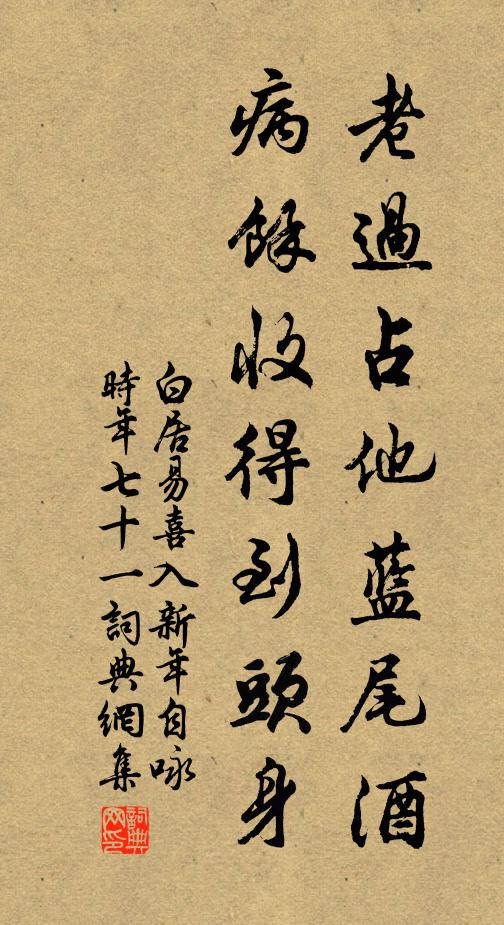 老過占他藍尾酒
病餘收得到頭身
白居易喜入新年自咏
時年七十一詞典網集
詞典
网印